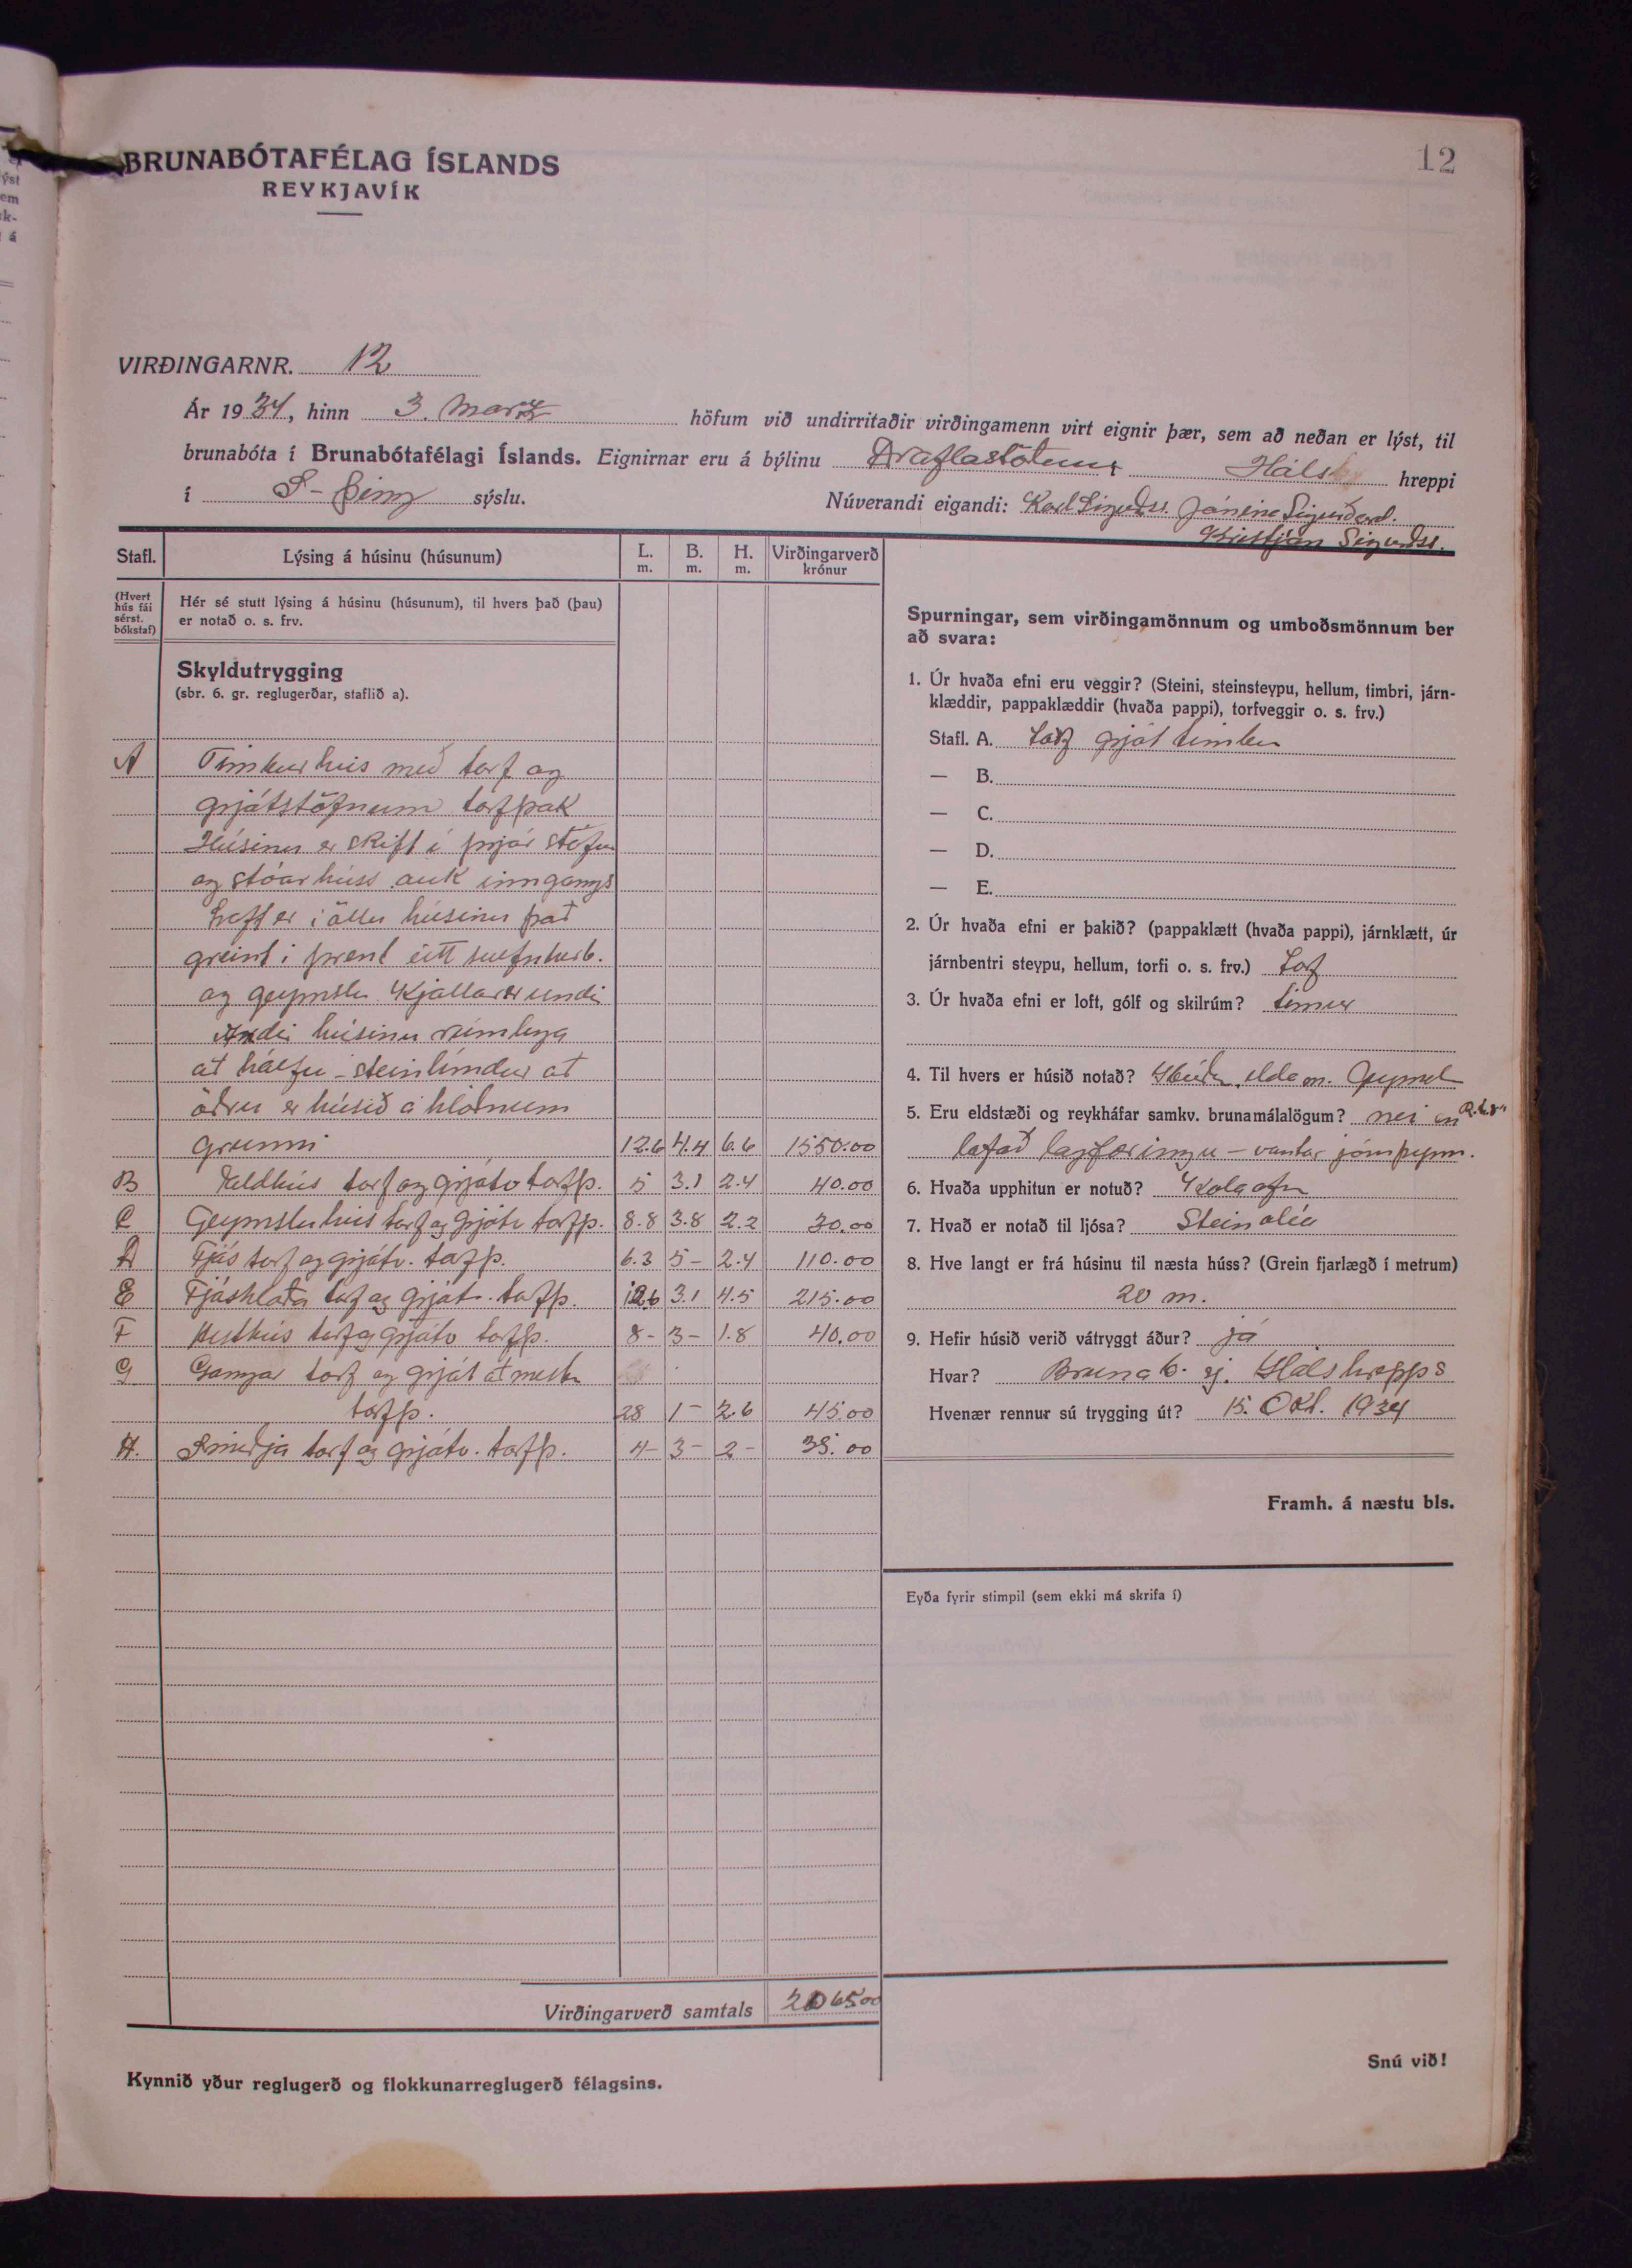 12
BRUNABÓTAFÉLAG ÍSLANDS
REYKJAVÍK
VIRÐINGARNR. 12
Ár 1934, hinn 3. Marz höfum við undirritaðir virðingamenn virt eignir þær, sem að neðan er lýst, til
brunabóta í Brunabótafélagi Íslands. Eignirnar eru á býlinu Draflastöðum Háls hreppi
í S-Þing sýslu. Núverandi eigandi: Karl Sigurðss. Jónína Sigurðard.
Kristján Sigurðss.
Stafl. Lýsing á húsinu (húsunum) L. m. B. m. H. m. Virðingarverð krónur
(Hvert hús fái sérst. bókstaf) Hér sé stutt lýsing á húsinu (húsunum), til hvers það (þau)
er notað o. s. frv.
Skyldutrygging
(sbr. 6. gr. reglugerðar, staflið a).
A Timburhús með torf og
grjótstöfnum torfþak
Húsinu er skift í þrjár stofur
og stóarhúss auk inngangs
Loft er í öllu húsinu það
greint í þrent eitt svefnherb.
og geymslu Kjallar er undir
húsinu rúmlega
að hálfu - steinlímdur að
öðru er húsið á hlóðnum
grunni 12.6 4.4 6.6 1550.00
B Eldhús torf og grjótv torfþ. 5 3.1 2.4 40.00
C Geymsluhús torf og grjótv torfþ. 8.8 3.8 2.2 30.00
D Fjós torf og grjótv. torfþ. 6.3 5- 2.4 110.00
E Fjóshlaða torf og grjótv. torfþ. 12.6 3.1 4.5 215.00
F Hesthús torf og grjótv torfþ. 8- 3- 1.8 40.00
G Gangar torf og grjót að mestu
torfþ. 28 1- 2.6 45.00
H. Smiðja torf og grjótv. torfþ. 4- 3- 2- 35.00
Virðingarverð samtals 2065.00
Kynnið yður reglugerð og flokkunarreglugerð félagsins.
Spurningar, sem virðingamönnum og umboðsmönnum ber
að svara:
1. Úr hvaða efni eru veggir? (Steini, steinsteypu, hellum, timbri, járn-
klæddir, pappaklæddir (hvaða pappi), torfveggir o. s. frv.)
Stafl. A. torf grjót timbur
— B.
— C.
— D.
— E.
2. Úr hvaða efni er þakið? (pappaklætt (hvaða pappi), járnklætt, úr
járnbentri steypu, hellum, torfi o. s. frv.) torf
3. Úr hvaða efni er loft, gólf og skilrúm? timur
4. Til hvers er húsið notað? Íbúðar, eldam. Geymsl
5. Eru eldstæði og reykháfar samkv. brunamálalögum? nei en
lofað lagfæringu - vantar járnþynn.
6. Hvaða upphitun er notuð? Kolaofn
7. Hvað er notað til ljósa? Steinolía
8. Hve langt er frá húsinu til næsta húss? (Grein fjarlægð í metrum)
20 m.
9. Hefir húsið verið vátryggt áður? já
Hvar? Brunab. sj. Hálshrepps
Hvenær rennur sú trygging út? 15. Okt. 1934
Framh. á næstu bls.
Eyða fyrir stimpil (sem ekki má skrifa í)
Snú við!